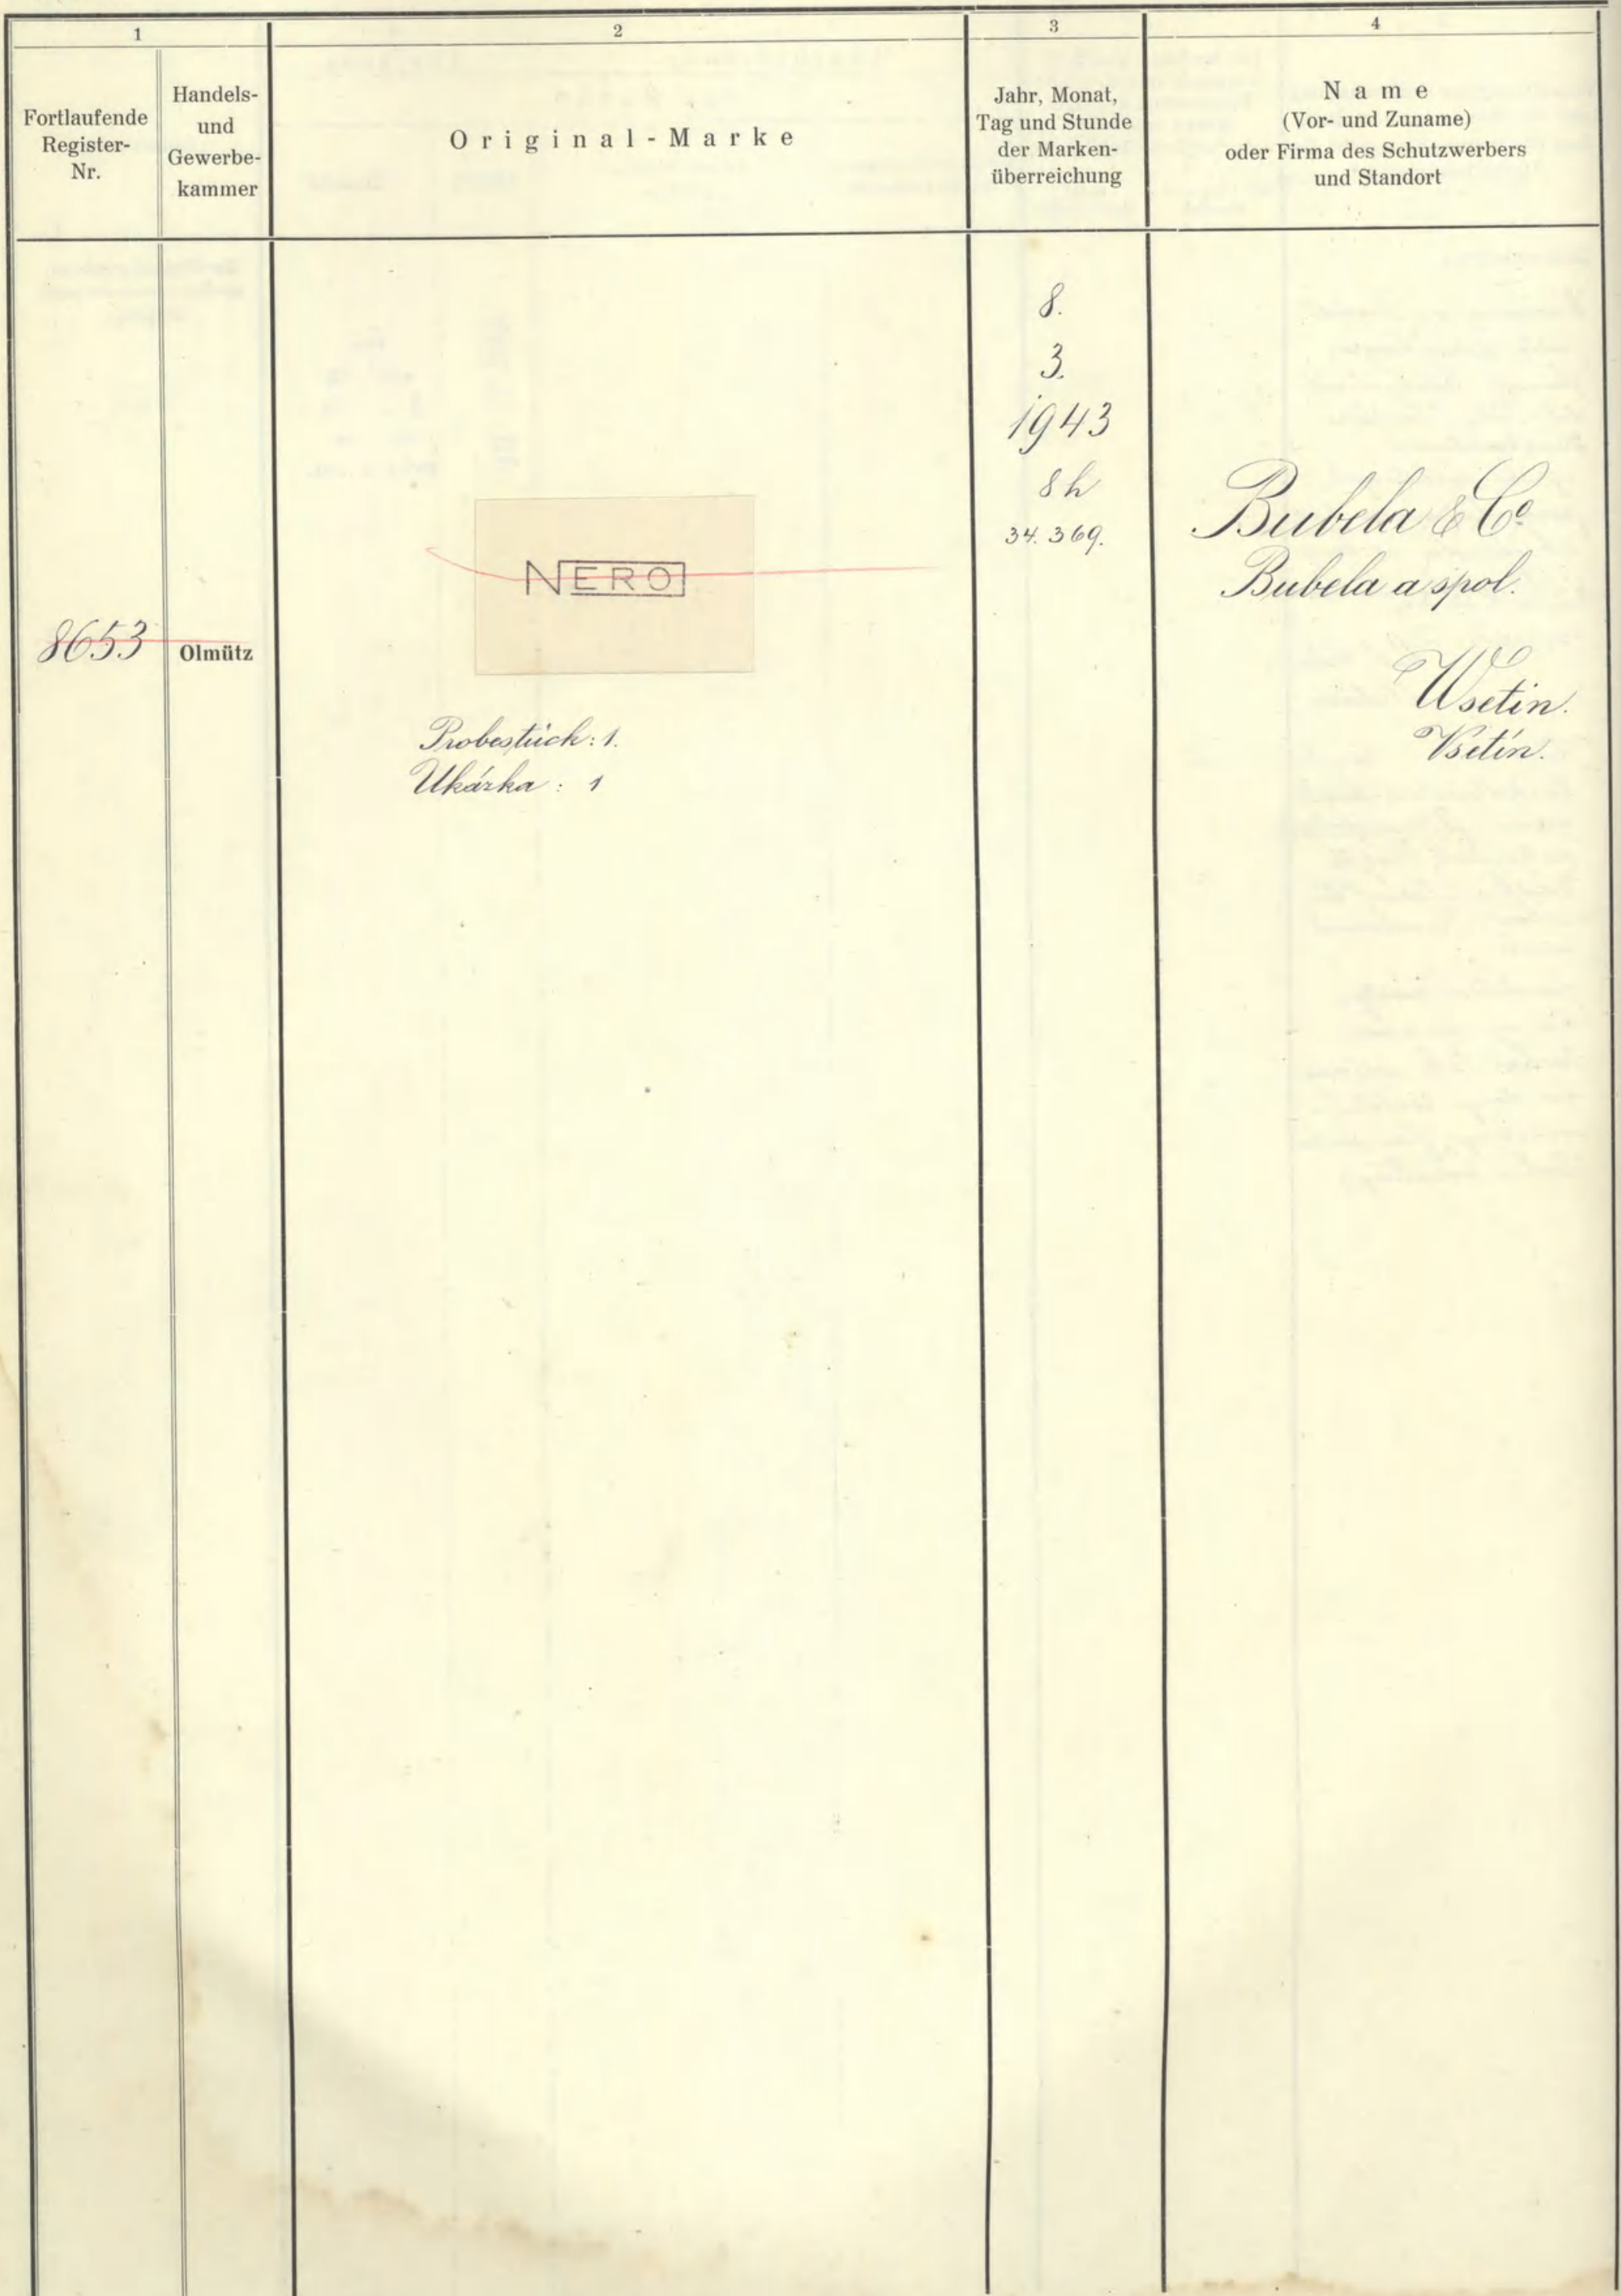 1
2
3
4
Fortlaufende
Register-
Nr.
Handels-
und
Gewerbe-
kammer
Original-Marke
Jahr, Monat,
Tag und Stunde
der Marken-
überreichung
Name
(Vor- und Zuname)
oder Firma des Schutzwerbers
und Standort
8653
Olmütz
NERO
Probestück: 1.
Ukázka: 1
8.
3.
1943
8h
34.369.
Bubela & Co
Bubela a spol.
Wsetin.
Vsetín.